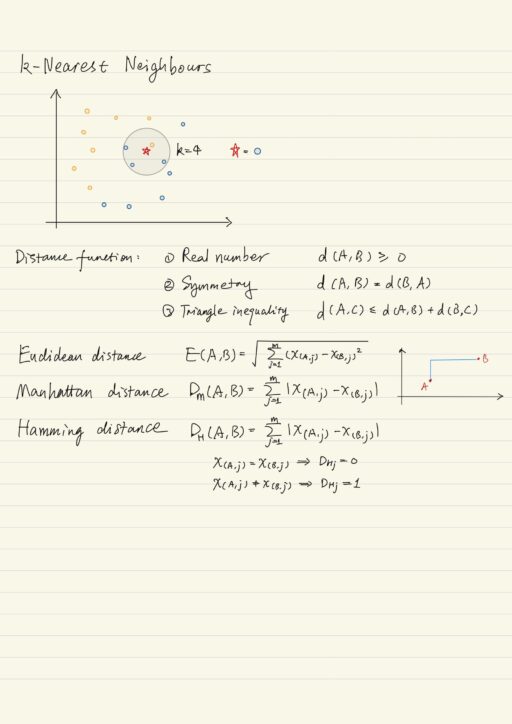 k-Nearest Neighbours
k=4 ☆ = ○
Distance function: ① Real number d(A,B) ≥ 0
② Symmetry d(A,B) = d(B,A)
③ Triangle inequality d(A,C) ≤ d(A,B) + d(B,C)
Euclidean distance E(A,B) = √ ∑_{j=1}^{m} (x(A,j) - x(B,j))²
B
A
Manhattan distance Dm(A,B) = ∑_{j=1}^{m} |x(A,j) - x(B,j)|
Hamming distance DH(A,B) = ∑_{j=1}^{m} |x(A,j) - x(B,j)|
x(A,j) = x(B,j) ⇒ DHj = 0
x(A,j) ≠ x(B,j) ⇒ DHj = 1